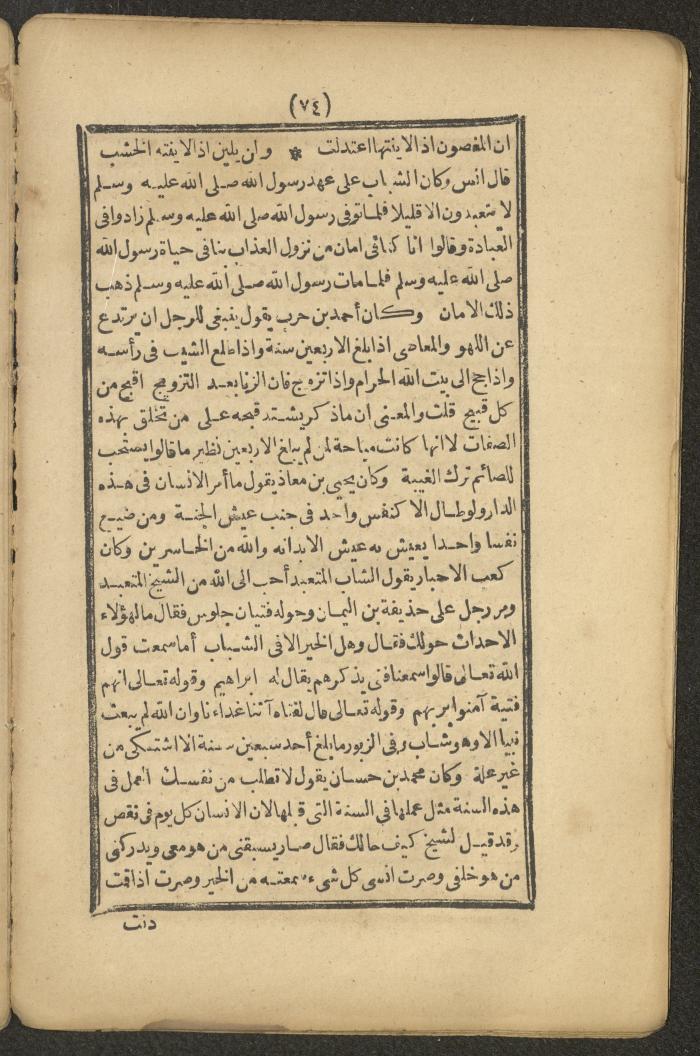 (٧٤)
ان الغصون اذا لاينتها اعتدلت * وان يلين اذا لاينته الخشب
قال انس وكان الشباب على عهد رسول الله صلى الله عليه وسلم
لا يتعبدون الا قليلا فلما توفى رسول الله صلى الله عليه وسلم زادوا فى
العبادة وقالوا انا كنا فى امان من نزول العذاب بنا فى حياة رسول الله
صلى الله عليه وسلم فلما مات رسول الله صلى الله عليه وسلم ذهب
ذلك الامان وكان أحمد بن حرب يقول ينبغى للرجل ان يرتدع
عن اللهو والمعاصى اذا بلغ الاربعين سنة واذا طلع الشيب فى رأسه
واذا حج الى بيت الله الحرام واذا تزوج فان الزنا بعد التزويج اقبح من
كل قبيح قلت والمعنى ان ما ذكر يشتد قبحه على من تخلق بهذه
الصفات لا انها كانت مباحة لمن لم يبلغ الاربعين نظير ما قالوا يستحب
للصائم ترك الغيبة وكان يحيى بن معاذ يقول ما أمر الانسان فى هذه
الدار ولو طال الا كنفس واحد فى جنب عيش الجنة ومن ضيع
نفسا واحدا يعيش به عيش الابد انه والله من الخاسرين وكان
كعب الاحبار يقول الشاب المتعبد أحب الى الله من الشيخ المتعبد
ومر رجل على حذيفة بن اليمان وحوله فتيان جلوس فقال ما لهؤلاء
الاحداث حولك فقال وهل الخير الا فى الشباب أما سمعت قول
الله تعالى قالوا سمعنا فتى يذكرهم يقال له ابراهيم وقوله تعالى انهم
فتية آمنوا بربهم وقوله تعالى قال لفتاه آتنا غداءنا وان الله لم يبعث
نبيا الا وهو شاب وفى الزبور ما بلغ أحد سبعين سنة الا اشتكى من
غير علة وكان محمد بن حسان يقول لا تطلب من نفسك العمل فى
هذه السنة مثل عملها فى السنة التى قبلها لان الانسان كل يوم فى نقص
وقد قيل لشيخ كيف حالك فقال صار يسبقنى من هو معى ويدركنى
من هو خلفى وصرت انسى كل شىء سمعته من الخير وصرت اذا قت
دنت